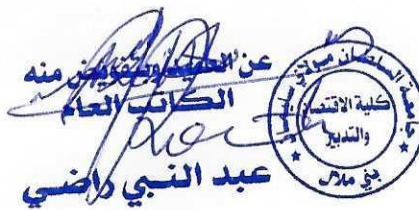 عن العميد وبتفويض منه
الكاتب العام
عبد النبي راضي
جامعة السلطان مولاي سليمان
كلية الاقتصاد
والتدبير
بني ملال